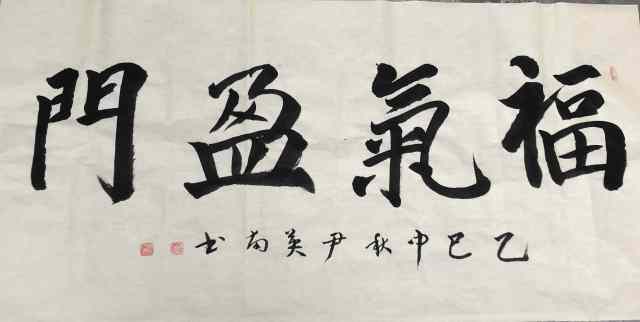 福氣盈門
乙巳中秋尹英南书